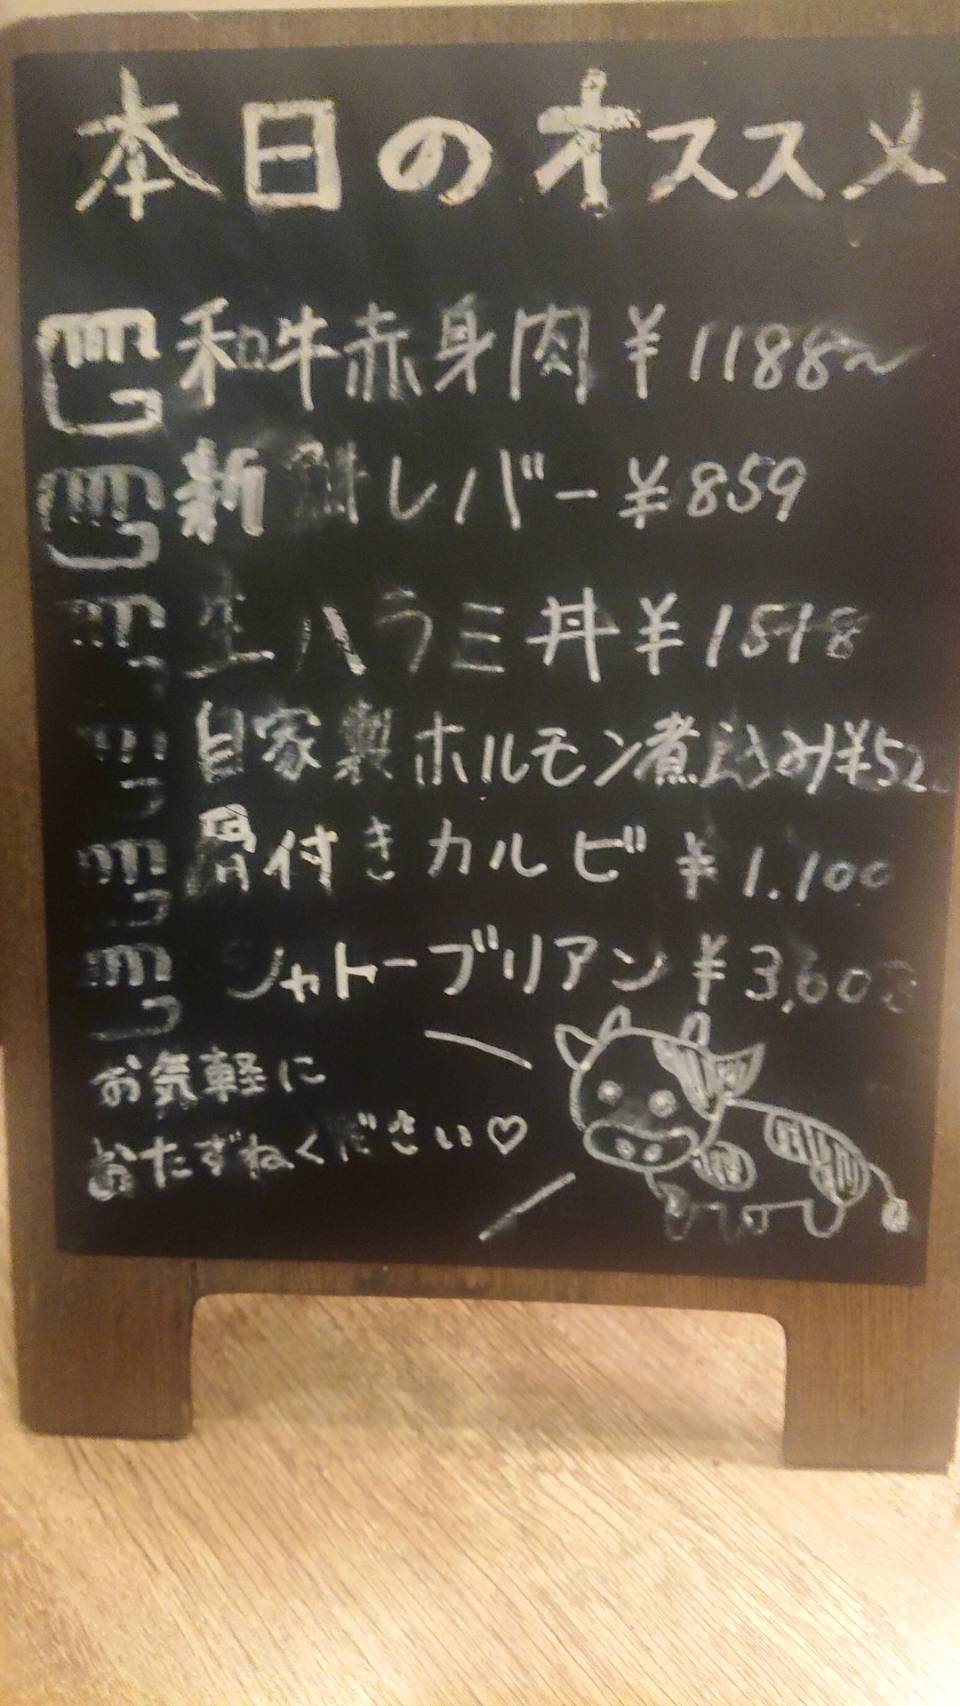 本日のオススメ
和牛赤身肉 ¥1188~
新鮮レバー ¥859
生ハラミ丼 ¥1518
自家製ホルモン煮込み ¥52
骨付きカルビ ¥1.100
シャトーブリアン ¥3,608
お気軽に
おたずねください♡